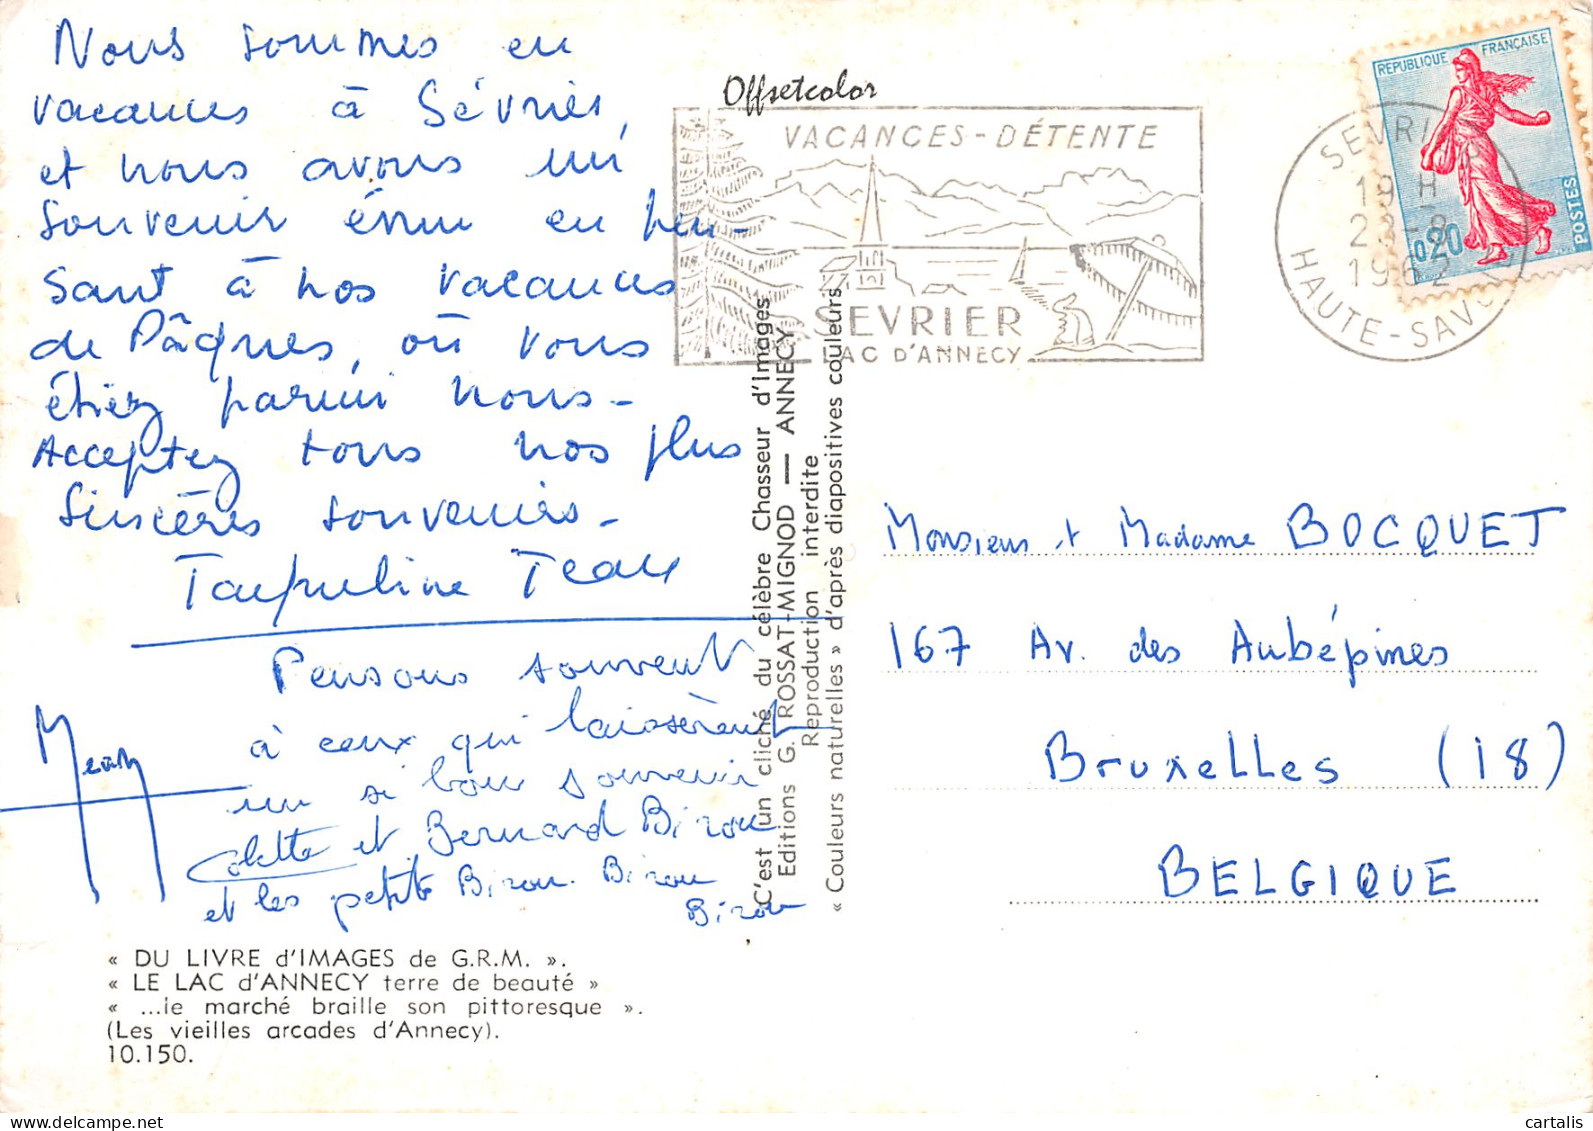 Nous sommes en
vacances à Sévrier,
et nous avons un
souvenir ému en pen-
sant à nos vacances
de Pâques, où vous
étiez parmi nous -
Acceptez tous nos plus
sincères souvenirs -
Jacqueline Jean
Pensons souvent
à ceux qui laissèrent
un si bon souvenir
Colette et Bernard Birou
et les petits Birou. Birou
Birou
« DU LIVRE d'IMAGES de G.R.M. ».
« LE LAC d'ANNECY terre de beauté »
« ...le marché braille son pittoresque ».
(Les vieilles arcades d'Annecy).
10.150.
Offsetcolor
C'est un cliché du célèbre Chasseur d'Images
Editions G. ROSSAT-MIGNOD — ANNECY
Reproduction interdite
« Couleurs naturelles » d'après diapositives couleurs
VACANCES-DÉTENTE
SEVRIER
LAC D'ANNECY
SEVRI
19 H
23-8
1962
HAUTE-SAVO
REPUBLIQUE FRANÇAISE
0,20
POSTES
Monsieur et Madame BOCQUET
167 Av. des Aubépines
Bruxelles (18)
BELGIQUE
cartalis